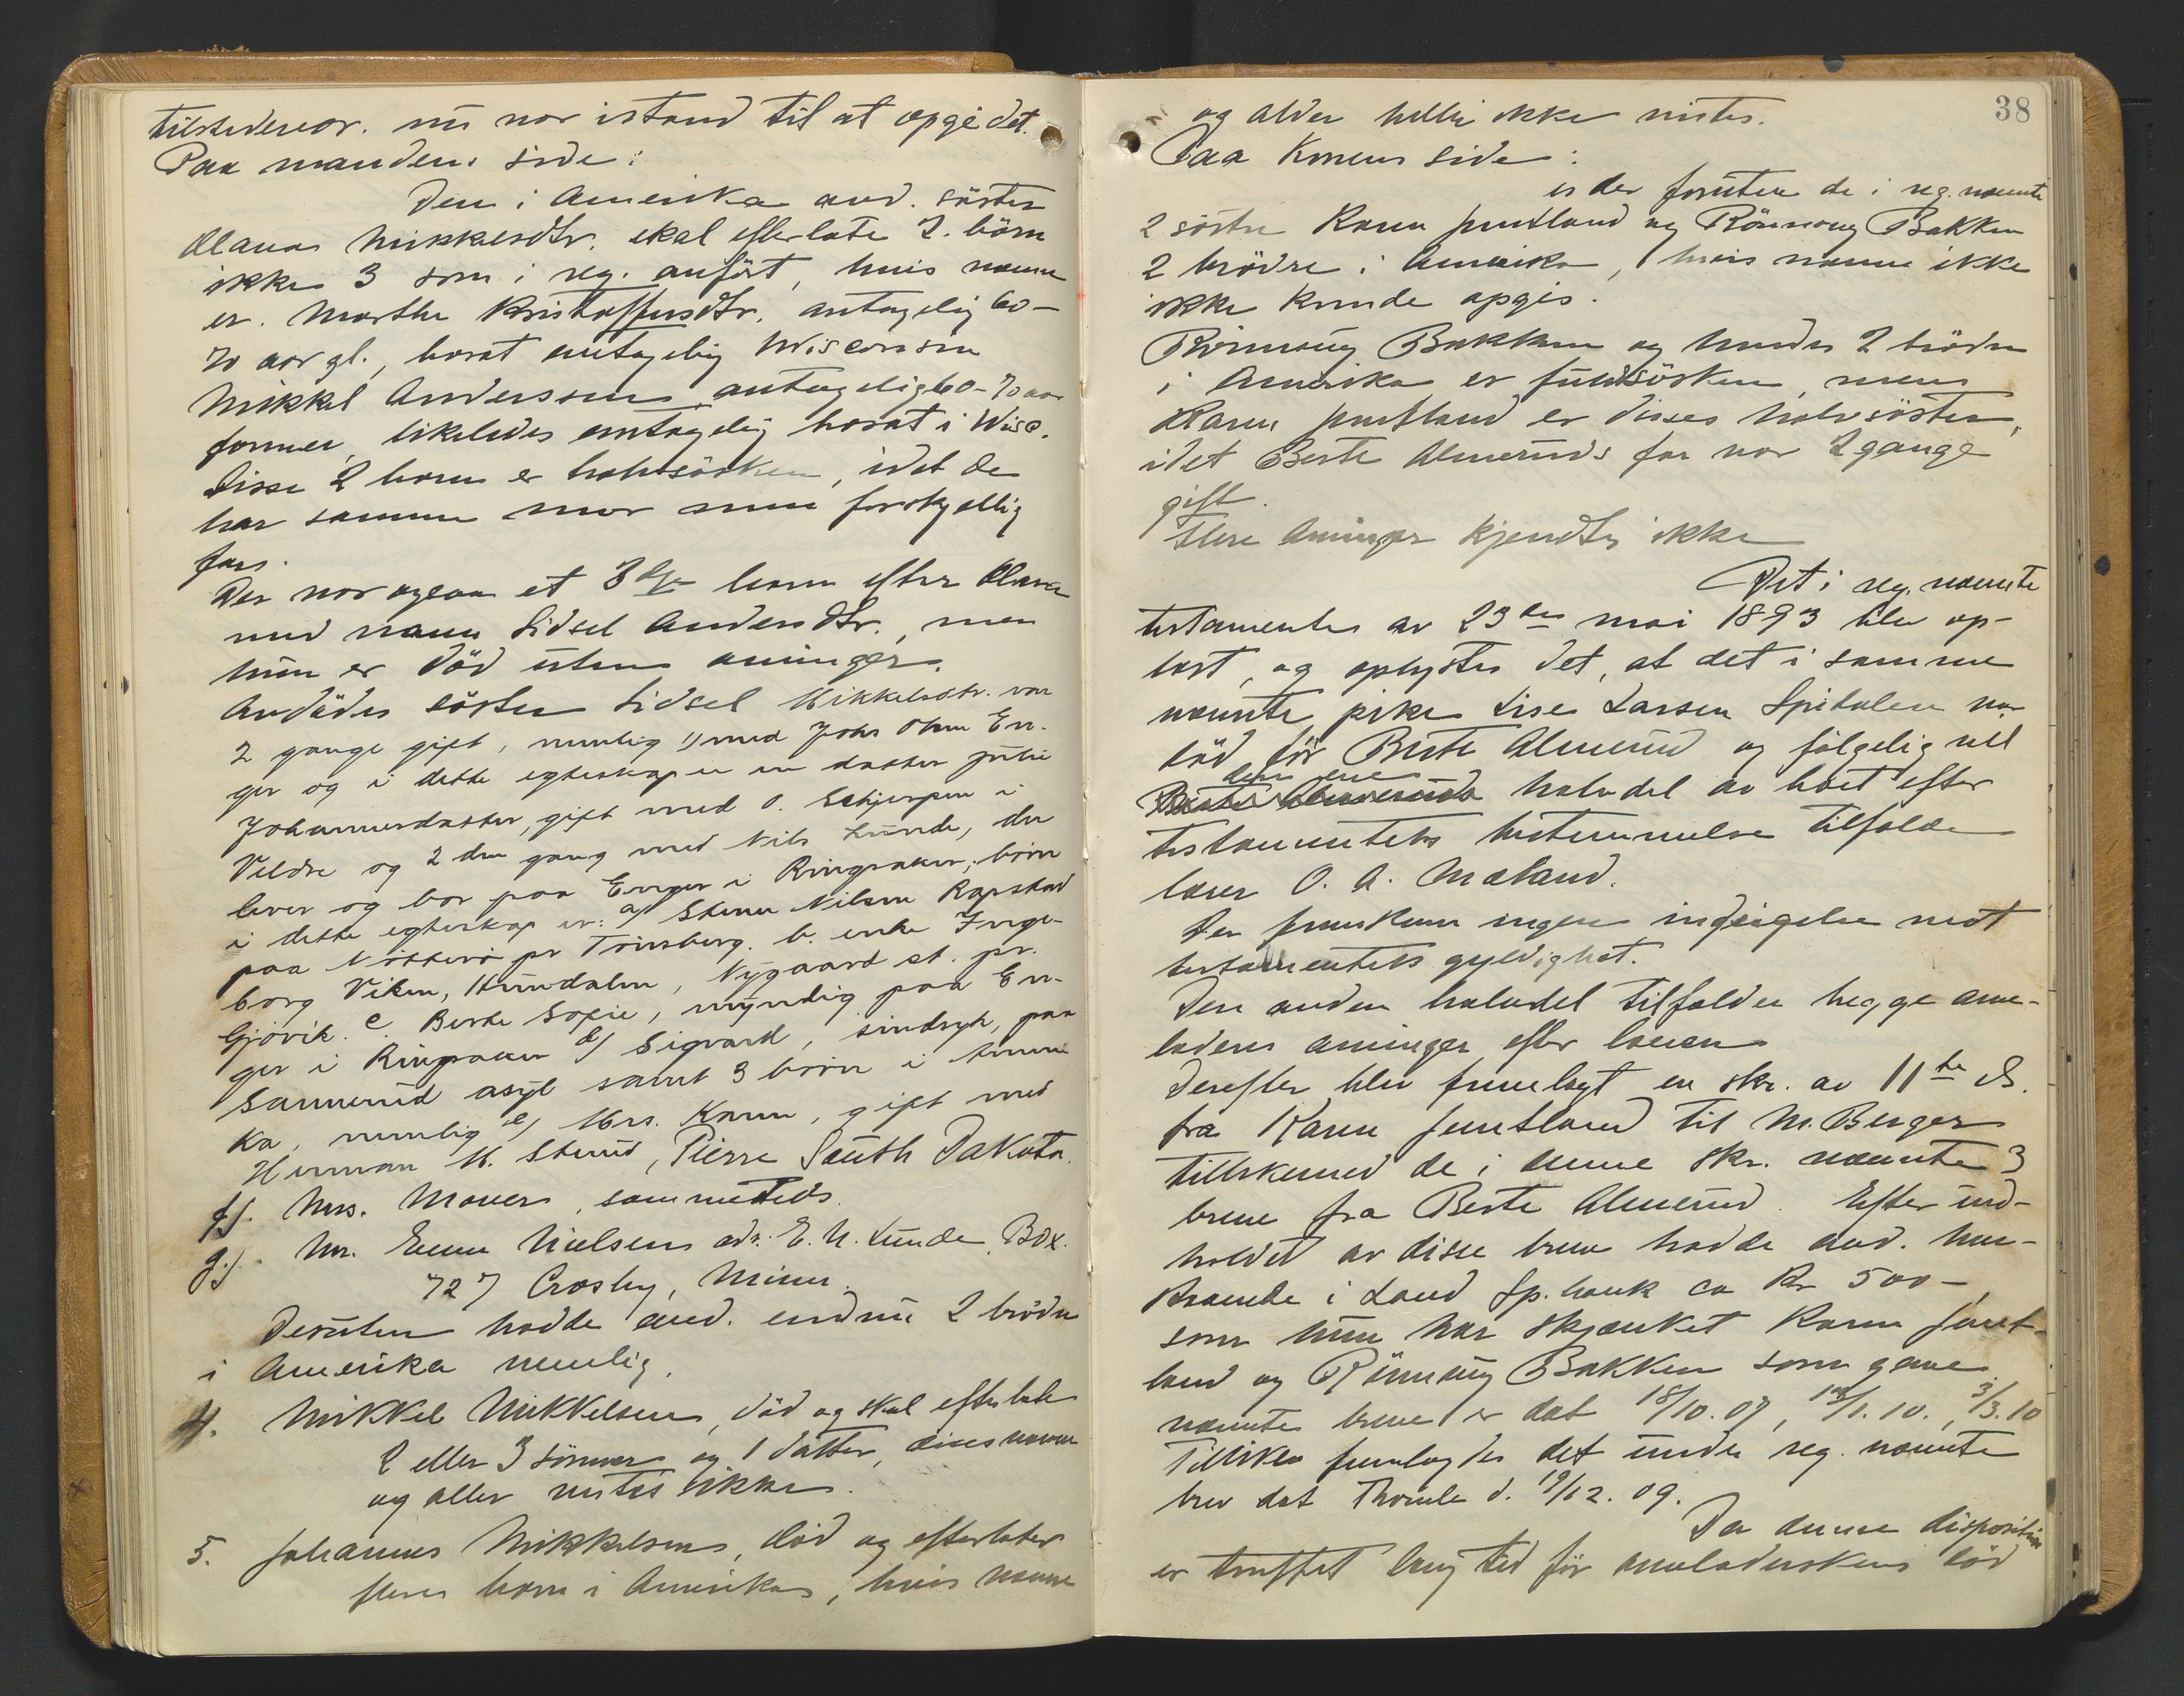 tilstedevær. nu var istand til at opgi det.
Paa mandens side:
Den i Amerika avd. søster
Olava Mikkelsdtr. skal efterlate 2 børn
ikke 3 som i reg. anført, hvis navne
er. Marthe Kristoffersdtr. antagelig 60-
70 aar gl., bosat antagelig Wisconsin
Mikkel Anderssen, antagelig 60-70 aar
farmer, likeledes antagelig bosat i Wisc.
Disse 2 barn er halvsøsken, idet de
har samme mor men forskjellig
far.
Der var ogsaa et 3die barn efter Olava
med navn Sidsel Andersdtr., men
hun er død uten arvinger.
Avdødes søster Sidsel Mikkelsdtr. var
2 gange gift, nemlig 1) med Johs Olsen En-
ger og i dette egteskap er en datter Julie
Johannesdatter, gift med O. Schjerpen i
Veldre og 2den gang med Nils Lunde, der
lever og bor paa Enger i Ringsaker; børn
i dette egteskap er: a) Stener Nilsen Rapstad
paa Nøtterø pr Tønsberg. b. enke Inge-
borg Viken, Hunndalen, Nygaard st. pr.
Gjøvik. c. Berte Sofie, myndig paa En-
ger i Ringsaker d) Sigvard, sindsyk, paa
Sannerud asyl samt 3 børn i Ameri
ka, nemlig e) Mrs. Karen, gift med
Herman M. Stenud, Pierre South Dakota.
f). Mrs. Moner, sammesteds.
g). Mr. Even Nielsen adr. E. N. Lunde, Box.
727 Crosby, Minn.
Desuten hadde avd. endnu 2 brødre
i Amerika nemlig.
4. Mikkel Mikkelsen, død og skal efterlate
2 eller 3 sønner og 1 datter, disses navne
og alder vites ikke.
5. Johannes Mikkelsen, død og efterlater
flere barn i Amerika, hvis navne
38
og alder heller ikke vites.
Paa Konens side:
er der foruten de i reg. nævnte
2 søstre Karen Jemtland og Rønnaug Bakken
2 brødre i Amerika, hvis navne ikke
ikke kunde opgis.
Rønnaug Bakken og hendes 2 brødre
i Amerika er fuldsøsken, mens
Karen Jemtland er disses halvsøster,
idet Berte Almeruds far var 2 gange
gift.
Flere arvinger kjendtes ikke
Det i reg. nævnte
testamente av 23de mai 1893 blev op-
læst, og oplystes det, at det i samme
nævnte pike Lise Larsen Spitalen var
død før Berte Almerud og følgelig vil
den ene
Berte Almeruds halvdel av boet efter
testamentets bestemmelse tilfalde
lærer O. A. Mæland.
Der fremkom ingen indsigelse mot
testamentets gyldighet.
Den anden halvdel tilfalder begge arve-
laderes arvinger efter loven
Derefter blev fremlagt en skr. av 11te ds.
fra Karen Jemtland til M. Berger
tillikemed de i denne skr. nævnte 3
breve fra Berte Almerud. Efter ind-
holdet av disse breve hadde avd. hen-
staaende i Land Sp.bank ca Kr 500-,
som hun har skjænket Karen Jemt-
land og Rønnaug Bakken som gave.
nævnte breve er dat 18/10.07, 12/1.10., 3/3.10
Tillikes fremlagdes det under reg. nævnte
brev dat Thomle d. 19/12.09.
Da denne disposition
er truffet lang tid før arveladerskens død